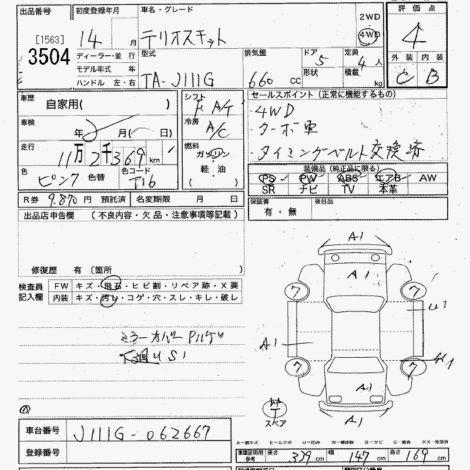 出品番号 初度登録年月 車名・グレード 評価点
[1563]
3504
14年 月 テリオスキット 2WD 4WD 4
ディーラー・並行 型式 排気量 ドア 定員 外装 内装
モデル年式 年 形状 積載
ハンドル 左・右 TA-J111G 660cc 5 4人 kg C B
車歴 シフト セールスポイント(正常に機能するもの)
自家用( ) F A4 4WD
車検 冷房
年 月( 日) A/C ターボ車
走行 燃料
11万2千369km ガソリン タイミングベルト交換済
色 色替 色コード 軽油
ピンク T16 ( )
装備品(純正品に限る)
PS PW ABS エアB AW
SR ナビ TV 本革
R券 9,870円 預託済 名変期限 月 日
保証書 後日品
有・無
出品店申告欄 (不良内容・欠品・注意事項等記載)
修復歴 有 [箇所 ]
検査員記入欄 FW キズ・飛石・ヒビ割・リペア跡・X要
内装 キズ・汚れ・コゲ・穴・スレ・キレ・破レ
A1
A1
7 7
U1
A1
7 7
A1
A1
スペア
ミラーカバー
下廻りS1
車台番号 J111G-062667
登録番号
長さ 339cm 幅 147cm 高さ 169cm